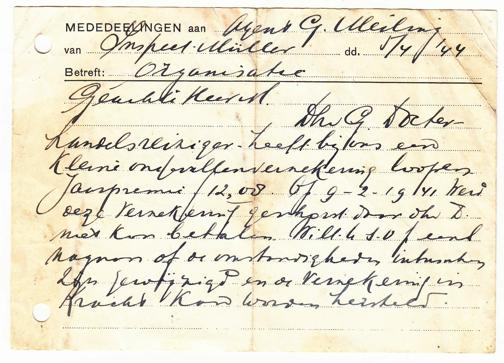 MEDEDEELINGEN aan Agent G. Meiling
van Inspect. Müller dd. 5/4 '44
Betreft: Organisatie
Geachte Heer M.
Dhr G. Docter
handelsreiziger - heeft bij ons een
kleine ongevallenverzekering loopen
Jaarpremie f 12,00. Of 9-2-1941 Werd
deze Verzekering geschorst daar dhr D.
niet kon betalen. Wilt U s.v.p. eens
nagaan of de omstandigheden intusschen
zijn gewijzigd en de Verzekering in
Kracht Kan worden hersteld.